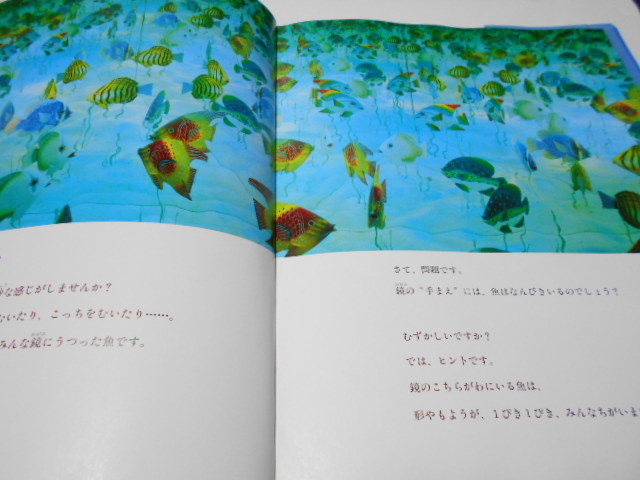 な感じがしませんか？
むいたり、こっちをむいたり……。
みんな鏡にうつった魚です。
さて、問題です。
鏡の“手まえ”には、魚はなんびきいるのでしょう？
むずかしいですか？
では、ヒントです。
鏡のこちらがわにいる魚は、
形やもようが、１ぴき１ぴき、みんなちがいま